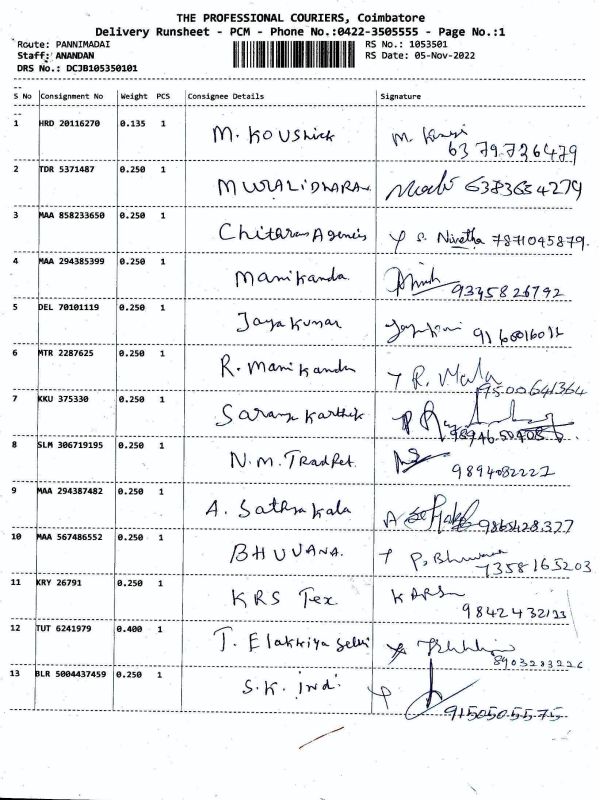 THE PROFESSIONAL COURIERS, Coimbatore
Delivery Runsheet - PCM - Phone No.:0422-3505555 - Page No.:1
Route: PANNIMADAI RS No.: 1053501
Staff: ANANDAN RS Date: 05-Nov-2022
DRS No.: DCJB105350101
S No Consignment No Weight PCS Consignee Details Signature
1 HRD 20116270 0.135 1 M. Koushick M.
6379736479
2 TDR 5371487 0.250 1 MURALIDHARAN 6383654279
3 MAA 858233650 0.250 1 Chitharas Agencies S. Nivetha 7871045879.
4 MAA 294385399 0.250 1 Manikanda
9345826792
5 DEL 70101119 0.250 1 Jaya Kumar 9160016011
6 MTR 2287625 0.250 1 R. Manikanda R. Mala
9500641364
7 KKU 375330 0.250 1 Saranya Karthik
8 SLM 306719195 0.250 1 N.M. TradRet.
9894082227
9 MAA 294387482 0.250 1 A. Sathya Kala A
9865428327
10 MAA 567486552 0.250 1 BHUVANA. P. Bhuvana
7358165203
11 KRY 26791 0.250 1 KRS Tex
9842432133
12 TUT 6241979 0.400 1 T. Elakkiya Selvi
8903283226
13 BLR 5004437459 0.250 1 S.K. ind.
9150505575